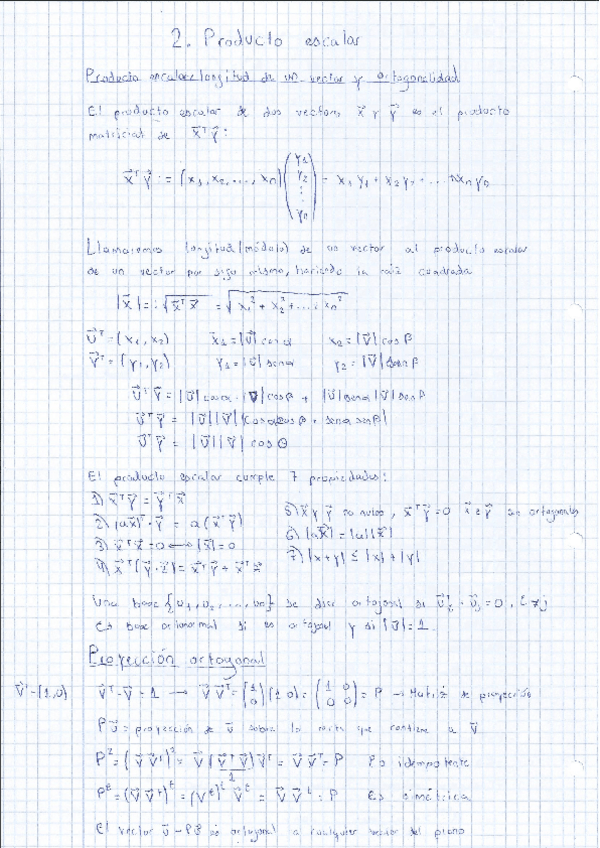 2. Producto escalar
Producto escalar, longitud de un vector y ortogonalidad
El producto escalar de dos vectores x⃗ y y⃗ es el producto
matricial de x⃗ᵀy⃗:
x⃗ᵀy⃗ := (x₁, x₂, ..., xₙ) (y₁ y₂ ⋮ yₙ) = x₁y₁ + x₂y₂ + ... + xₙyₙ
Llamaremos longitud (módulo) de un vector al producto escalar
de un vector por sigo mismo, haciendo la raiz cuadrada
|x⃗| =: √(x⃗ᵀx⃗) = √(x₁² + x₂² + ... + xₙ²)
u⃗ᵀ = (x₁, x₂) x₁ = |u⃗| cos α x₂ = |v⃗| cos β
v⃗ᵀ = (y₁, y₂) y₁ = |u⃗| sen α y₂ = |v⃗| sen β
u⃗ᵀv⃗ = |u⃗| cos α · |v⃗| cos β + |u⃗| sen α |v⃗| sen β
u⃗ᵀv⃗ = |u⃗||v⃗| (cos α cos β + sen α sen β)
u⃗ᵀv⃗ = |u⃗||v⃗| cos θ
El producto escalar cumple 7 propiedades:
1) x⃗ᵀy⃗ = y⃗ᵀx⃗
2) (ax⃗)ᵀ · y⃗ = a(x⃗ᵀy⃗)
3) x⃗ᵀx⃗ = 0 ⟷ |x⃗| = 0
4) x⃗ᵀ(y⃗ + z⃗) = x⃗ᵀy⃗ + x⃗ᵀz⃗
5) x⃗ y y⃗ no nulos, x⃗ᵀy⃗ = 0 x⃗ e y⃗ son ortogonales
6) |ax⃗| = |a||x⃗|
7) |x+y| ≤ |x| + |y|
Una base {u₁, u₂, ..., uₙ} se dice ortogonal si u⃗ᵢᵀ · u⃗ⱼ = 0, i ≠ j
Es base ortonormal si es ortogonal y si |u⃗| = 1.
Proyección ortogonal
v⃗ᵀ = (1,0) v⃗ᵀ · v⃗ = 1 → v⃗ v⃗ᵀ = (1 0) (1 0) = (1 0 0 0) = P → Matriz de proyección
Pu⃗ = proyección de u⃗ sobre la recta que contiene a v⃗
P² = (v⃗ v⃗ᵗ)² = v⃗ (v⃗ᵀ v⃗) v⃗ᵀ = v⃗ v⃗ᵀ = P Es idempotente
1
Pᵗ = (v⃗ v⃗ᵗ)ᵗ = (v⃗ᵗ)ᵗ v⃗ᵗ = v⃗ v⃗ᵗ = P Es simétrica
El vector u⃗ - Pu⃗ es ortogonal a cualquier vector del plano